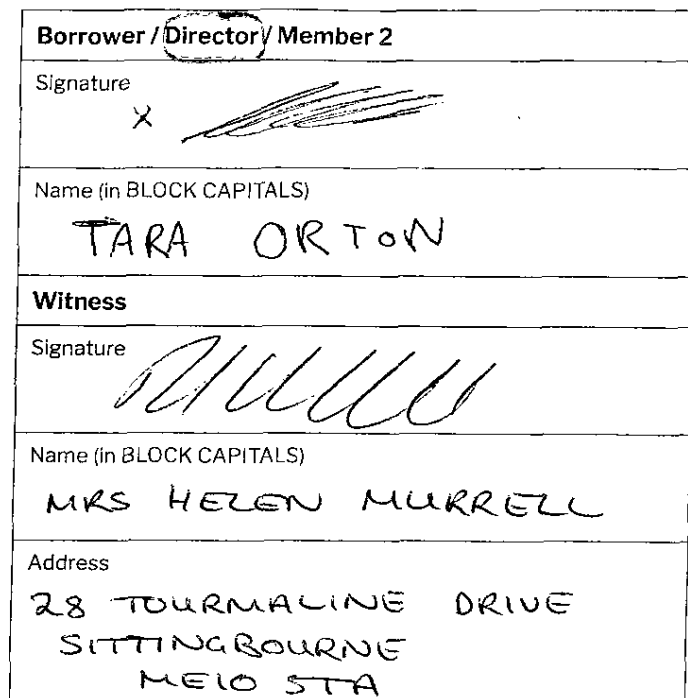 Borrower / Director / Member 2
Signature
X
Name (in BLOCK CAPITALS)
TARA ORTON
Witness
Signature
Name (in BLOCK CAPITALS)
MRS HELEN MURRELL
Address
28 TOURMALINE DRIVE
SITTINGBOURNE
ME10 5TA